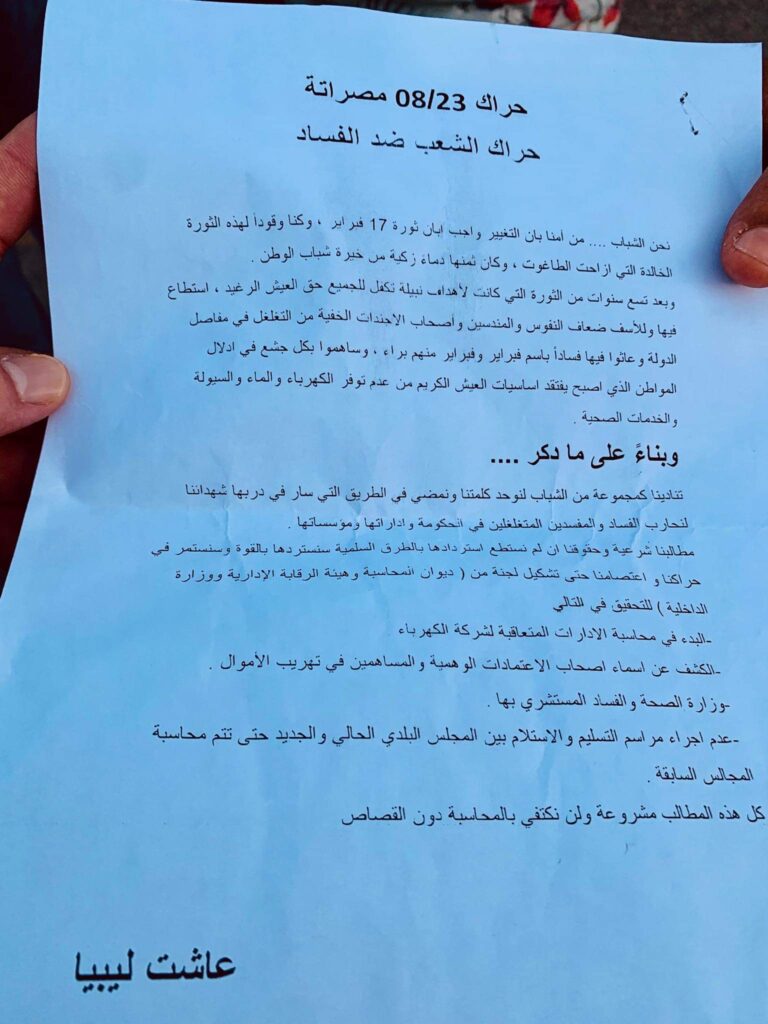 حراك 08/23 مصراتة
حراك الشعب ضد الفساد
نحن الشباب .... من أمنا بان التغيير واجب ابان ثورة 17 فبراير ، وكنا وقوداً لهذه الثورة
الخالدة التي ازاحت الطاغوت ، وكان ثمنها دماء زكية من خيرة شباب الوطن .
وبعد تسع سنوات من الثورة التي كانت لأهداف نبيلة تكفل للجميع حق العيش الرغيد ، استطاع
فيها وللأسف ضعاف النفوس والمندسين وأصحاب الاجندات الخفية من التغلغل في مفاصل
الدولة وعاثوا فيها فساداً باسم فبراير وفبراير منهم براء ، وساهموا بكل جشع في ادلال
المواطن الذي اصبح يفتقد اساسيات العيش الكريم من عدم توفر الكهرباء والماء والسيولة
والخدمات الصحية .
وبناءً على ما دكر ....
تنادينا كمجموعة من الشباب لنوحد كلمتنا ونمضي في الطريق التي سار في دربها شهدائنا
لنحارب الفساد والمفسدين المتغلغلين في الحكومة واداراتها ومؤسساتها .
مطالبنا شرعية وحقوقنا ان لم نستطع استردادها بالطرق السلمية سنستردها بالقوة وسنستمر في
حراكنا و اعتصامنا حتى تشكيل لجنة من ( ديوان المحاسبة وهيئة الرقابة الإدارية ووزارة
الداخلية ) للتحقيق في التالي
-البدء في محاسبة الادارات المتعاقبة لشركة الكهرباء
-الكشف عن اسماء اصحاب الاعتمادات الوهمية والمساهمين في تهريب الأموال .
-وزارة الصحة والفساد المستشري بها .
-عدم اجراء مراسم التسليم والاستلام بين المجلس البلدي الحالي والجديد حتى تتم محاسبة
المجالس السابقة .
كل هذه المطالب مشروعة ولن نكتفي بالمحاسبة دون القصاص
عاشت ليبيا